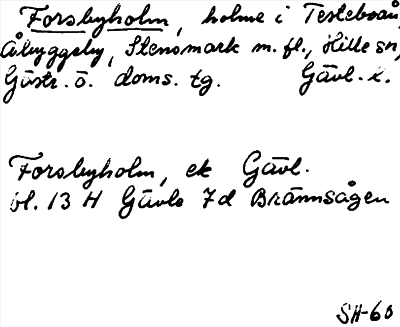 Forsbyholm, holme i Testeboån,
Åbyggeby, Stensmark m.fl., Hille sn,
Gästr. ö. doms. tg. Gävl. l.
Forsbyholm, ek Gävl.
bl. 13 H Gävle 7d Brännsågen
SH-60